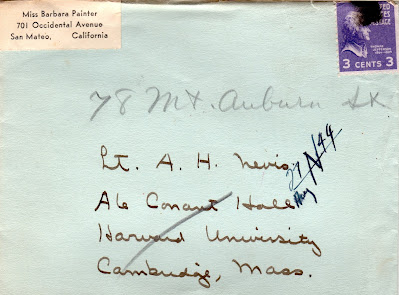 Miss Barbara Painter
701 Occidental Avenue
San Mateo, California
UNITED STATES
POSTAGE
3 CENTS 3
78 Mt. Auburn St
Lt. A. H. Nevis
A16 Conant Hall
Harvard University
Cambridge, Mass.